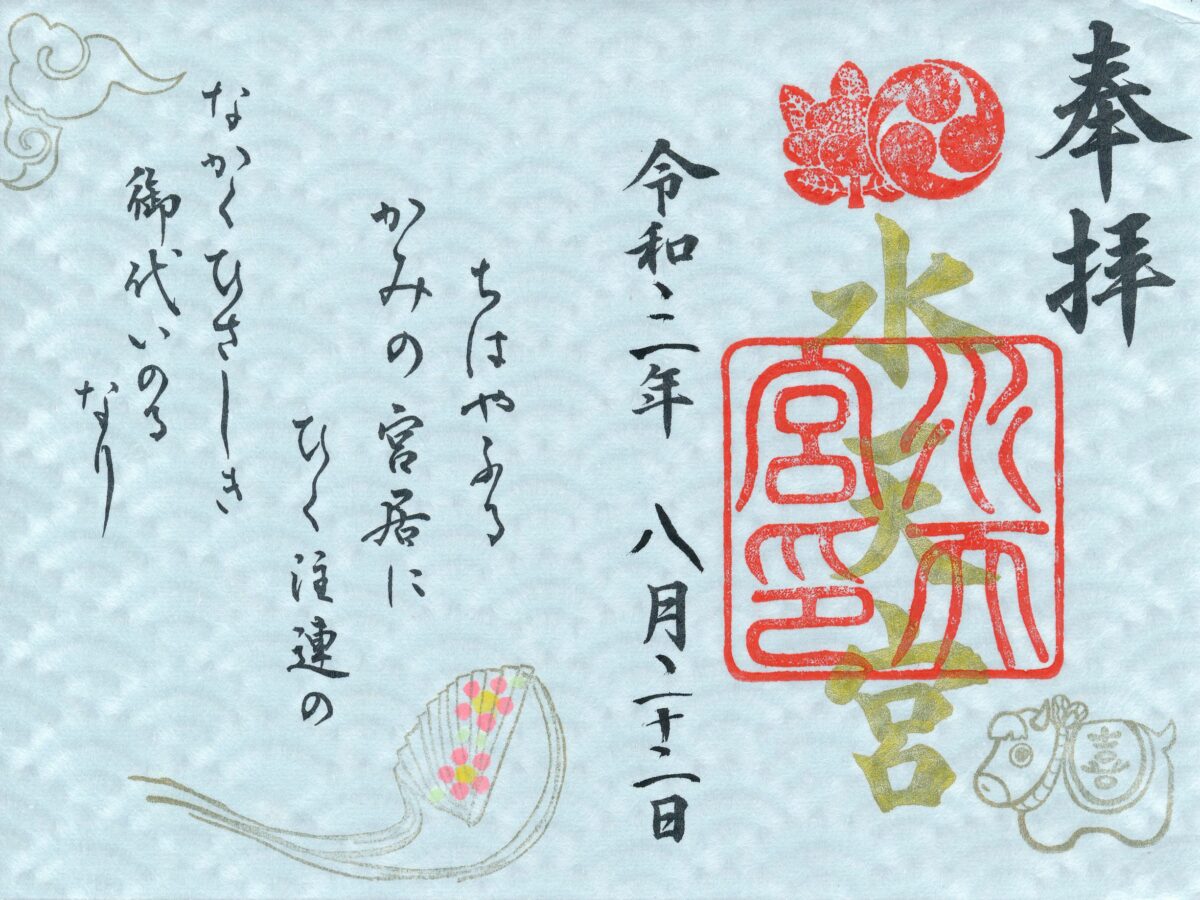 奉拝
水天宮
水天宮印
令和二年 八月二十二日
ちはやふる
かみの宮居に
ひく注連の
なかくひさしき
御代いのる
なり
喜